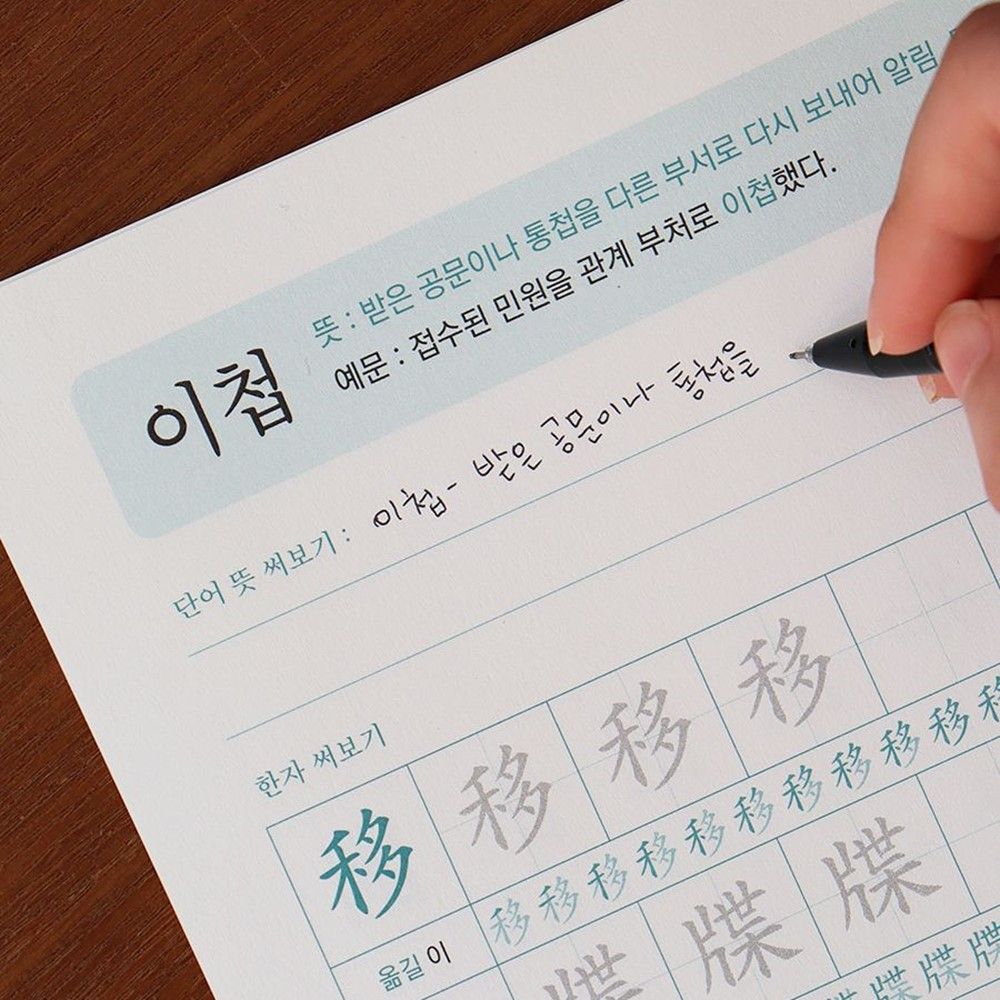 이첩
뜻 : 받은 공문이나 통첩을 다른 부서로 다시 보내어 알림.
예문 : 접수된 민원을 관계 부처로 이첩했다.
단어 뜻 써보기 : 이첩- 받은 공문이나 통첩을
한자 써보기
移 移 移 移
移 移 移 移 移 移 移 移 移 移 移
옮길 이
牒 牒 牒
牒 牒 牒